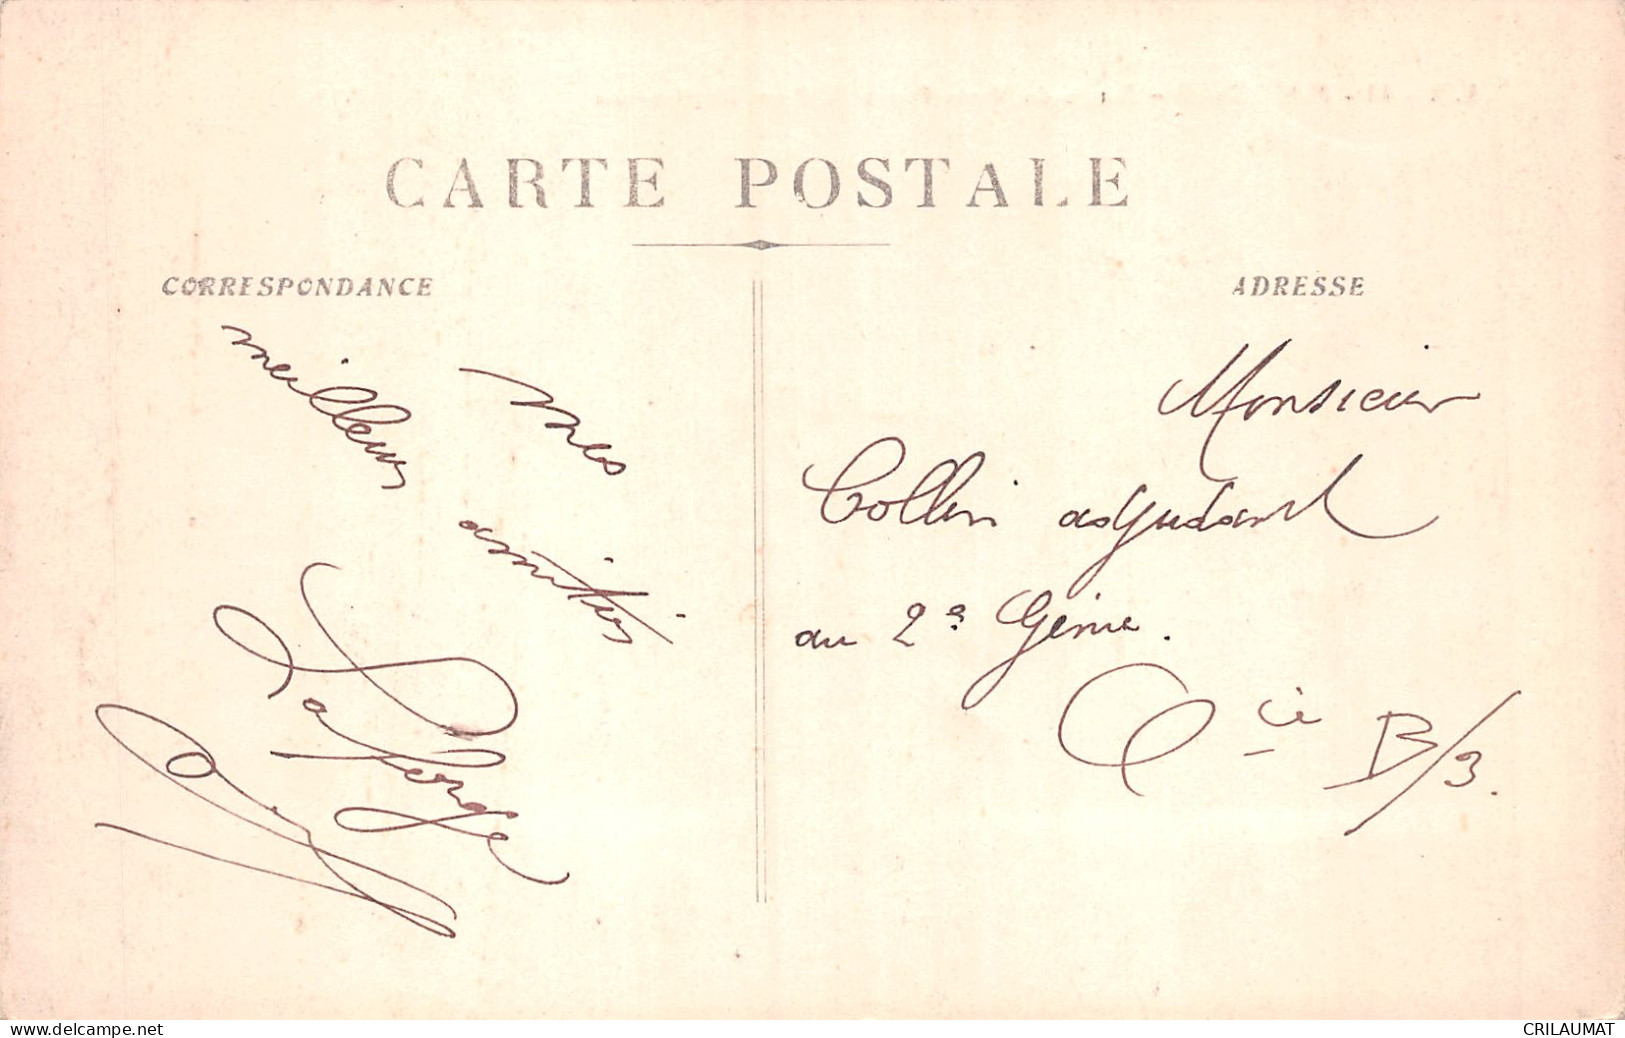 CARTE POSTALE
CORRESPONDANCE
ADRESSE
Mes
meilleurs
amitiés
Laforge
Monsieur
Collin adjudant
au 2e Génie.
Cie B/3.
www.delcampe.net
CRILAUMAT